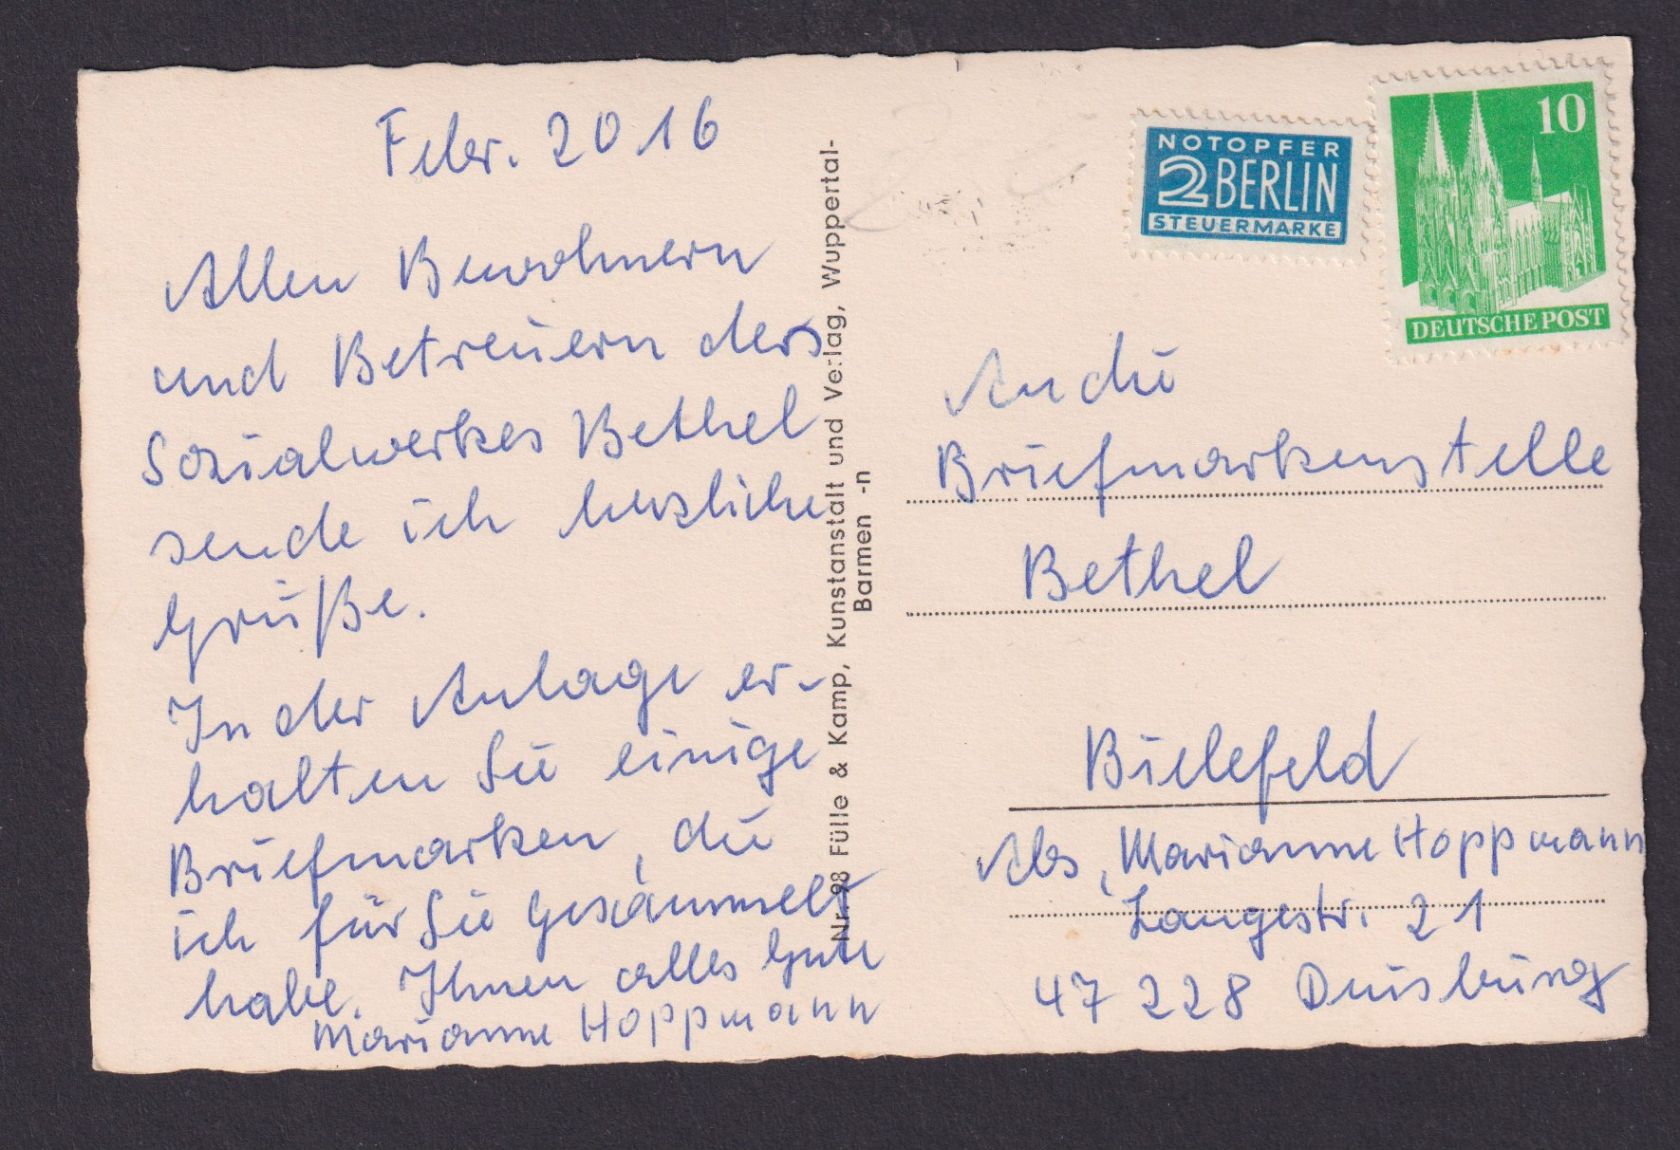 Febr. 2016
Allen Bewohnern
und Betreuern des
Sozialwerkes Bethel
sende ich herzliche
Grüße.
In der Anlage er-
halten Sie einige
Briefmarken, die
ich für Sie gesammelt
habe. Ihnen alles Gute
Marianne Hoppmann
Nr. 98 Fülle & Kamp, Kunstanstalt und Verlag, Wuppertal-
Barmen -n
NOTOPFER
2 BERLIN
STEUERMARKE
10
DEUTSCHE POST
An die
Briefmarkenstelle
Bethel
Bielefeld
Abs, Marianne Hoppmann
Langestr. 21
47228 Duisburg